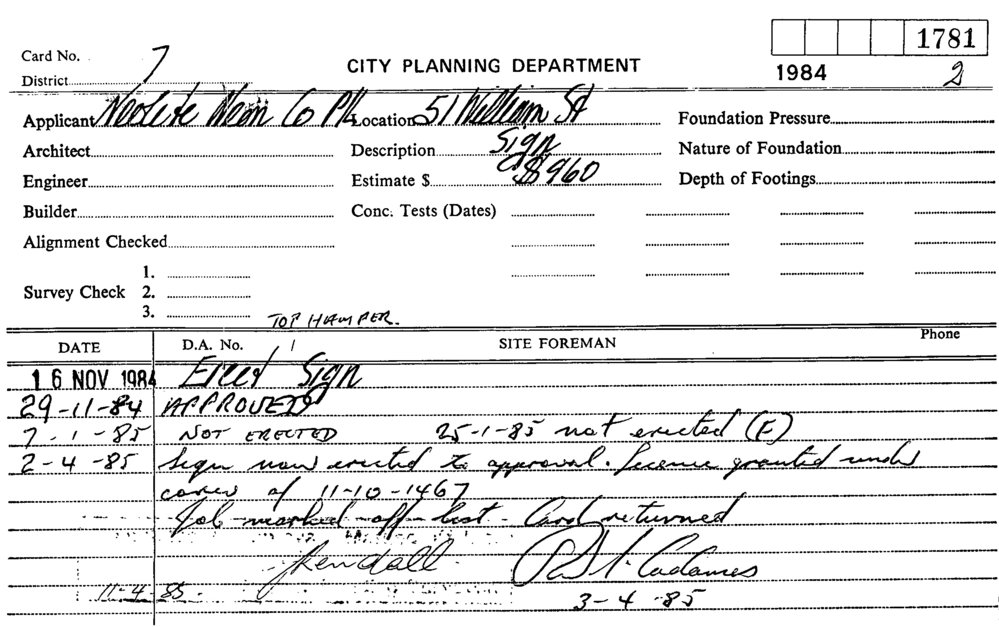 1781
Card No. 7
CITY PLANNING DEPARTMENT
1984 2
District
Applicant Neolite Neon Co P/L Location 51 William St Foundation Pressure
Architect Description Sign Nature of Foundation
Engineer Estimate $ $960 Depth of Footings
Builder Conc. Tests (Dates)
Alignment Checked
1.
Survey Check 2.
3.
TOP HAMPER.
DATE D.A. No. SITE FOREMAN Phone
16 NOV 1984 Erect Sign
29-11-84 APPROVED
7-1-85 NOT ERECTED 25-1-85 not erected (E)
2-4-85 Sign now erected to approval. License granted under
cover of 11-10-1467
Job marked off list - Card returned
Kendall
11-4-85 3-4-85